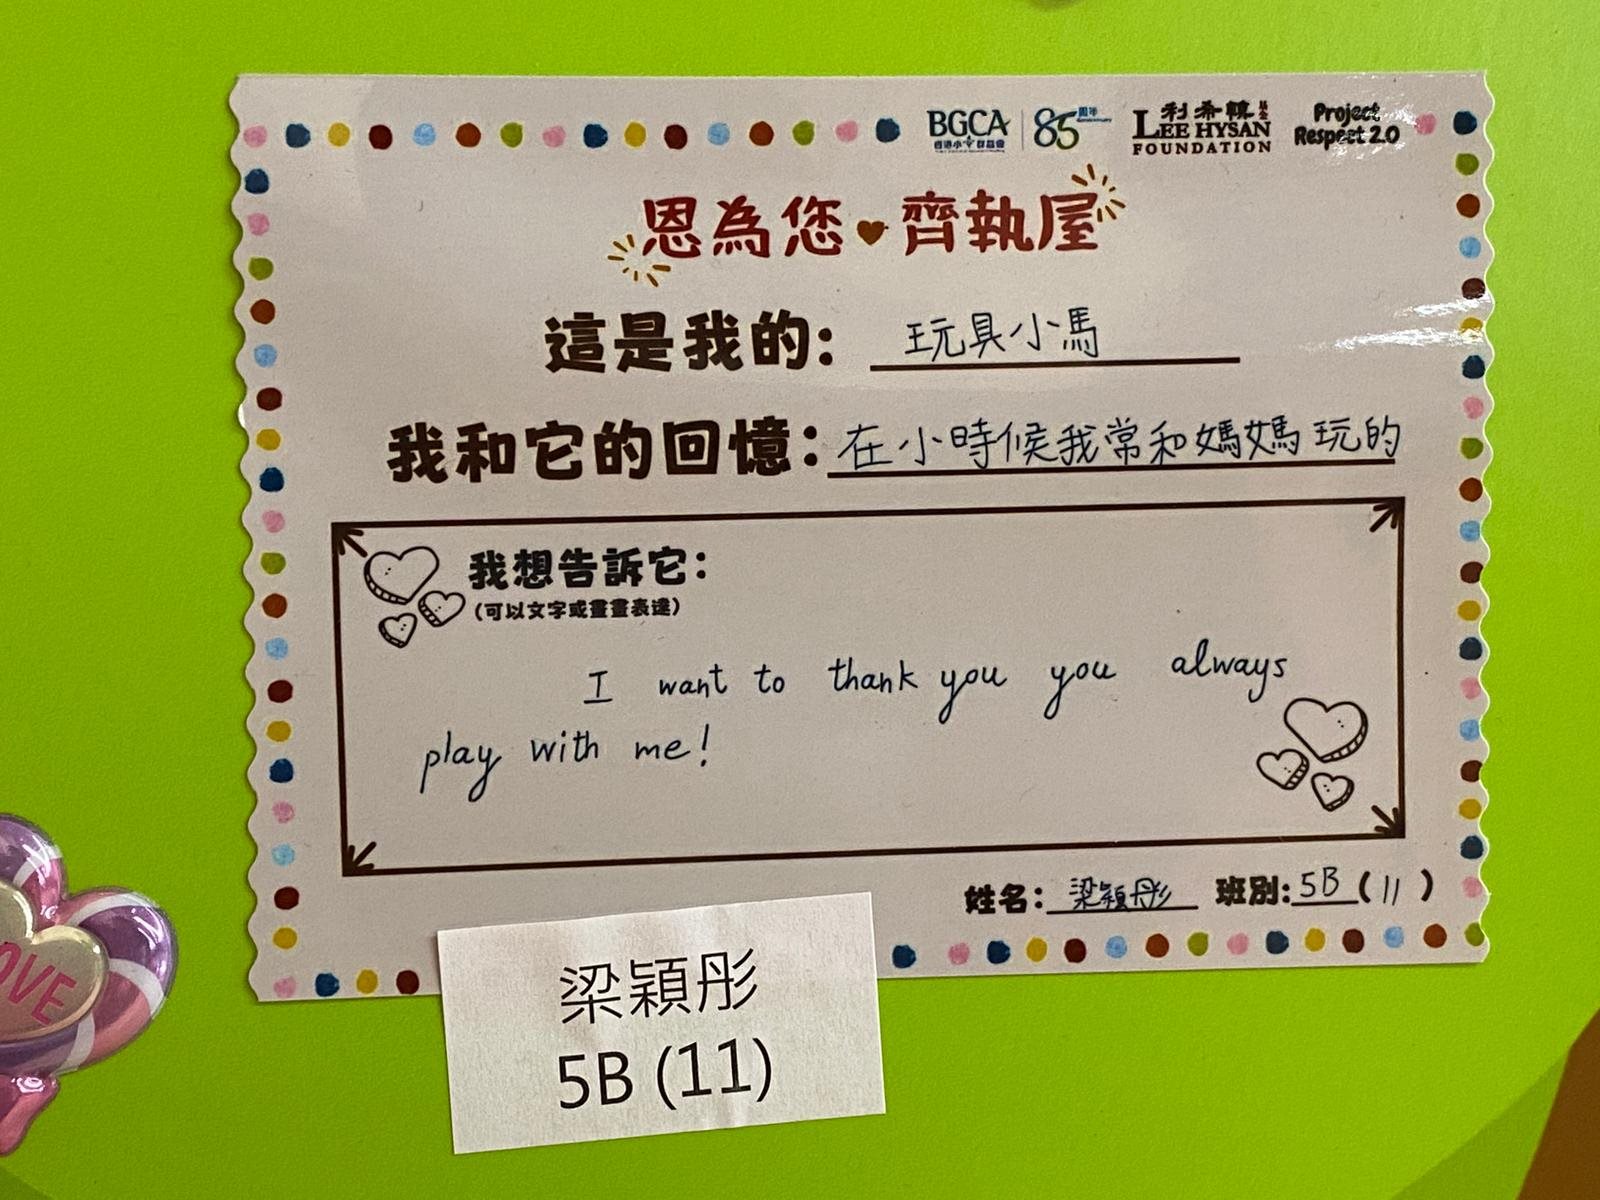 BGCA 85 周年
利希慎基金
LEE HYSAN
FOUNDATION
Project
Respect 2.0
恩為您 齊執屋
這是我的: 玩具小馬
我和它的回憶: 在小時候我常和媽媽玩的
我想告訴它:
(可以文字或畫畫表達)
I want to thank you you always
play with me!
姓名: 梁穎彤 班別: 5B (11)
梁穎彤
5B (11)
LOVE